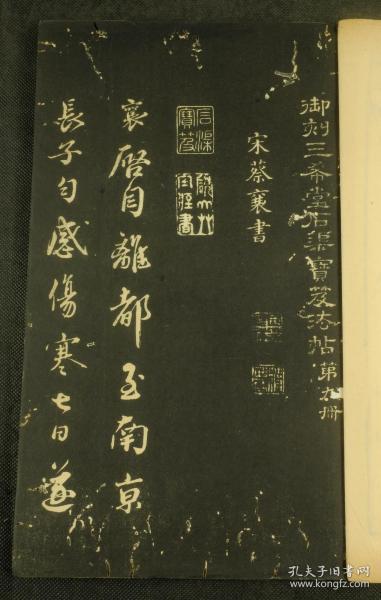 御刻三希堂石渠寶笈法帖第九册
宋蔡襄書
石渠寶笈
襄啓自離都至南京
長子勻感傷寒七日遂
孔夫子旧书网